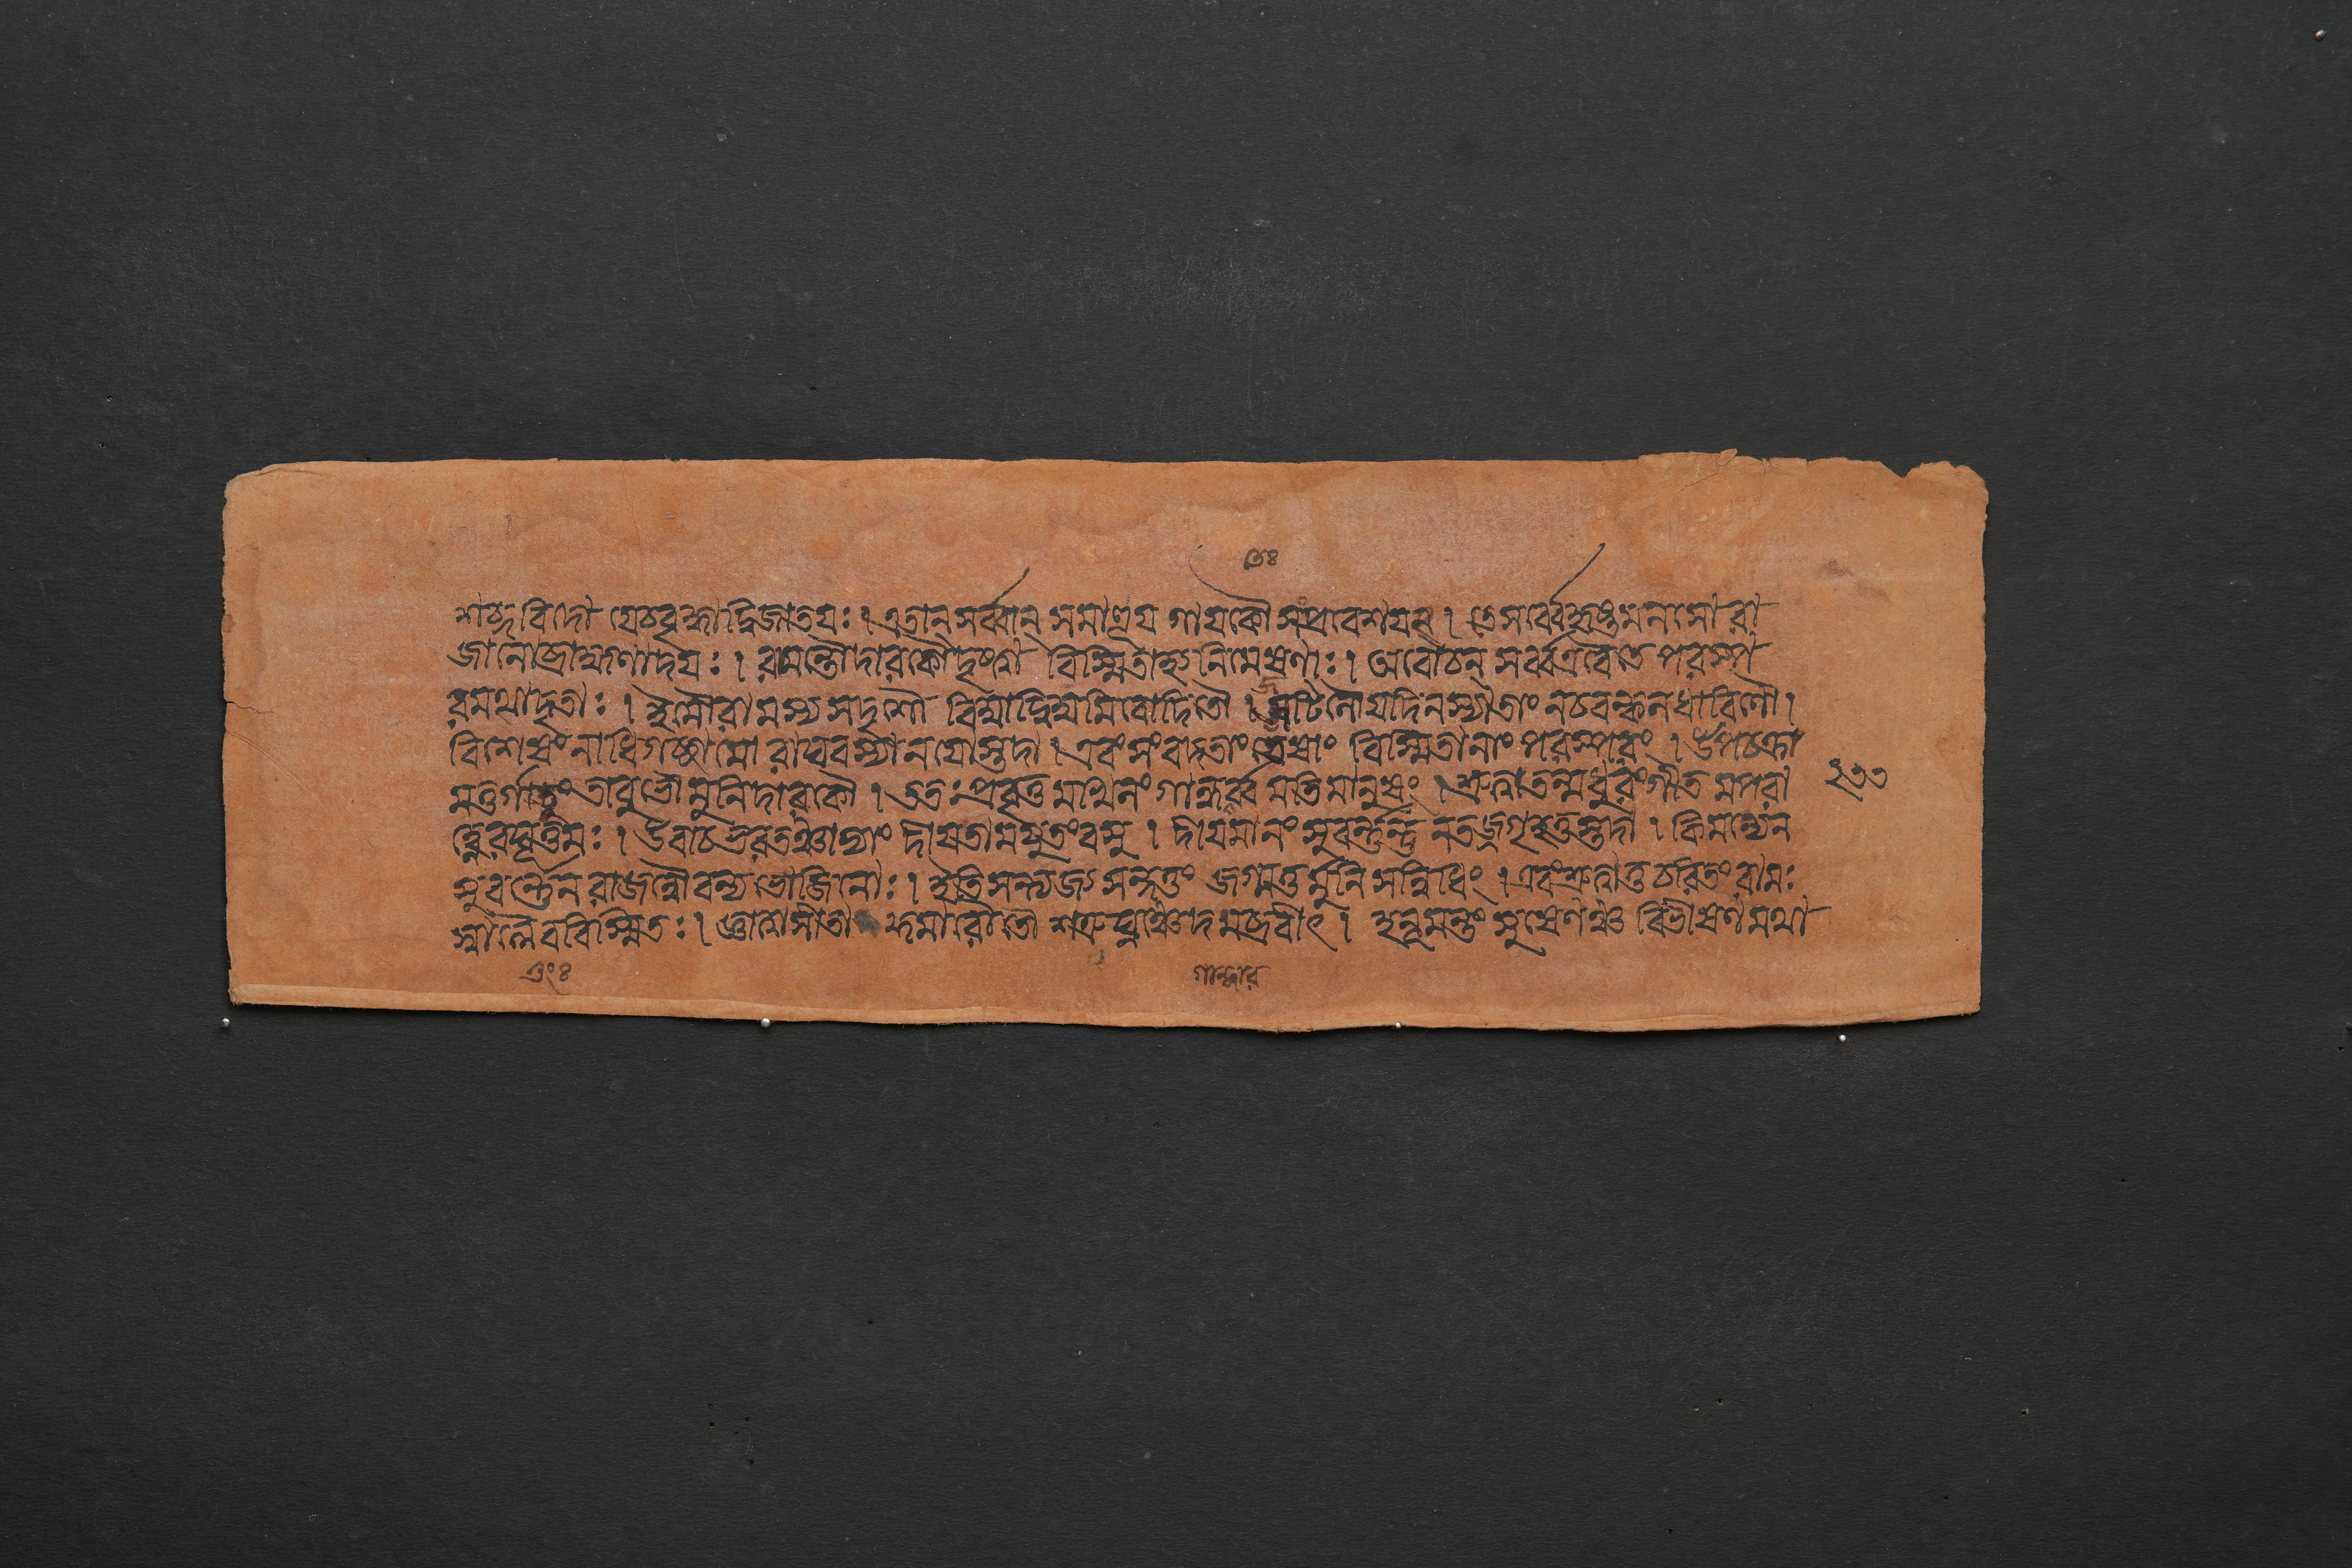 তেঃ
শব্দবিদো যেচবৃদ্ধাদ্বিজাতয়ঃ। এতান্ সর্ব্বান্ সমাহূয় গায়কৌ সংপ্রবেশয়ৎ। তে সর্ব্বে হৃষ্টমনসো রা
জানো ব্রাহ্মণাদয়ঃ। রামন্তৌ দারকৌ দৃষ্ট্বা বিস্মিতাহ্যনিমেষণাঃ। অবোচন্ সর্ব্ব এবৈতে পরস্প
রমথাদৃতাঃ। ইমৌ রামস্য সদৃশৌ বিম্বাদ্বিম্বমিবোদিতৌ। জটিলৌ যদি ন স্যাতাং নচ বল্কলধারিণৌ।
বিশেষং নাধিগচ্ছামো রাঘবস্যানয়োস্তদা। এবং সংবদতাং তেষাং বিস্মিতানাং পরস্পরং। উপচক্রা
মতুর্গাতুং তাবুভৌ মুনিদারকৌ। ততঃ প্রবৃত্তমখিলং গান্ধর্ব্বমতিমানুষং। শ্রুত্বা তন্মধুরং গীতমপরা
হ্ণে রঘূত্তমঃ। উবাচ ভরতঞ্চাভ্যাং দীয়তামযুতং বসু। দীয়মানং সুবর্ণন্তু নতজ্জগৃহতুস্তদা। কিমন্যেন
সুবর্ণেন রাজন্নৌ বন্যভোজিনৌঃ। ইতি সন্ত্যজ্য সন্দত্তং জগ্মতুর্মুনিসন্নিধিং। এবং শ্রুত্বাতু চরিতং রামঃ
স্বস্যৈব বিস্মিতঃ। জ্ঞাত্বা সীতাকুমারৌ তৌ শত্রুঘ্নঞ্চেদমব্রবীৎ। হনূমন্তং সুষেণঞ্চ বিভীষণমথা
২৩৩
গান্ধার